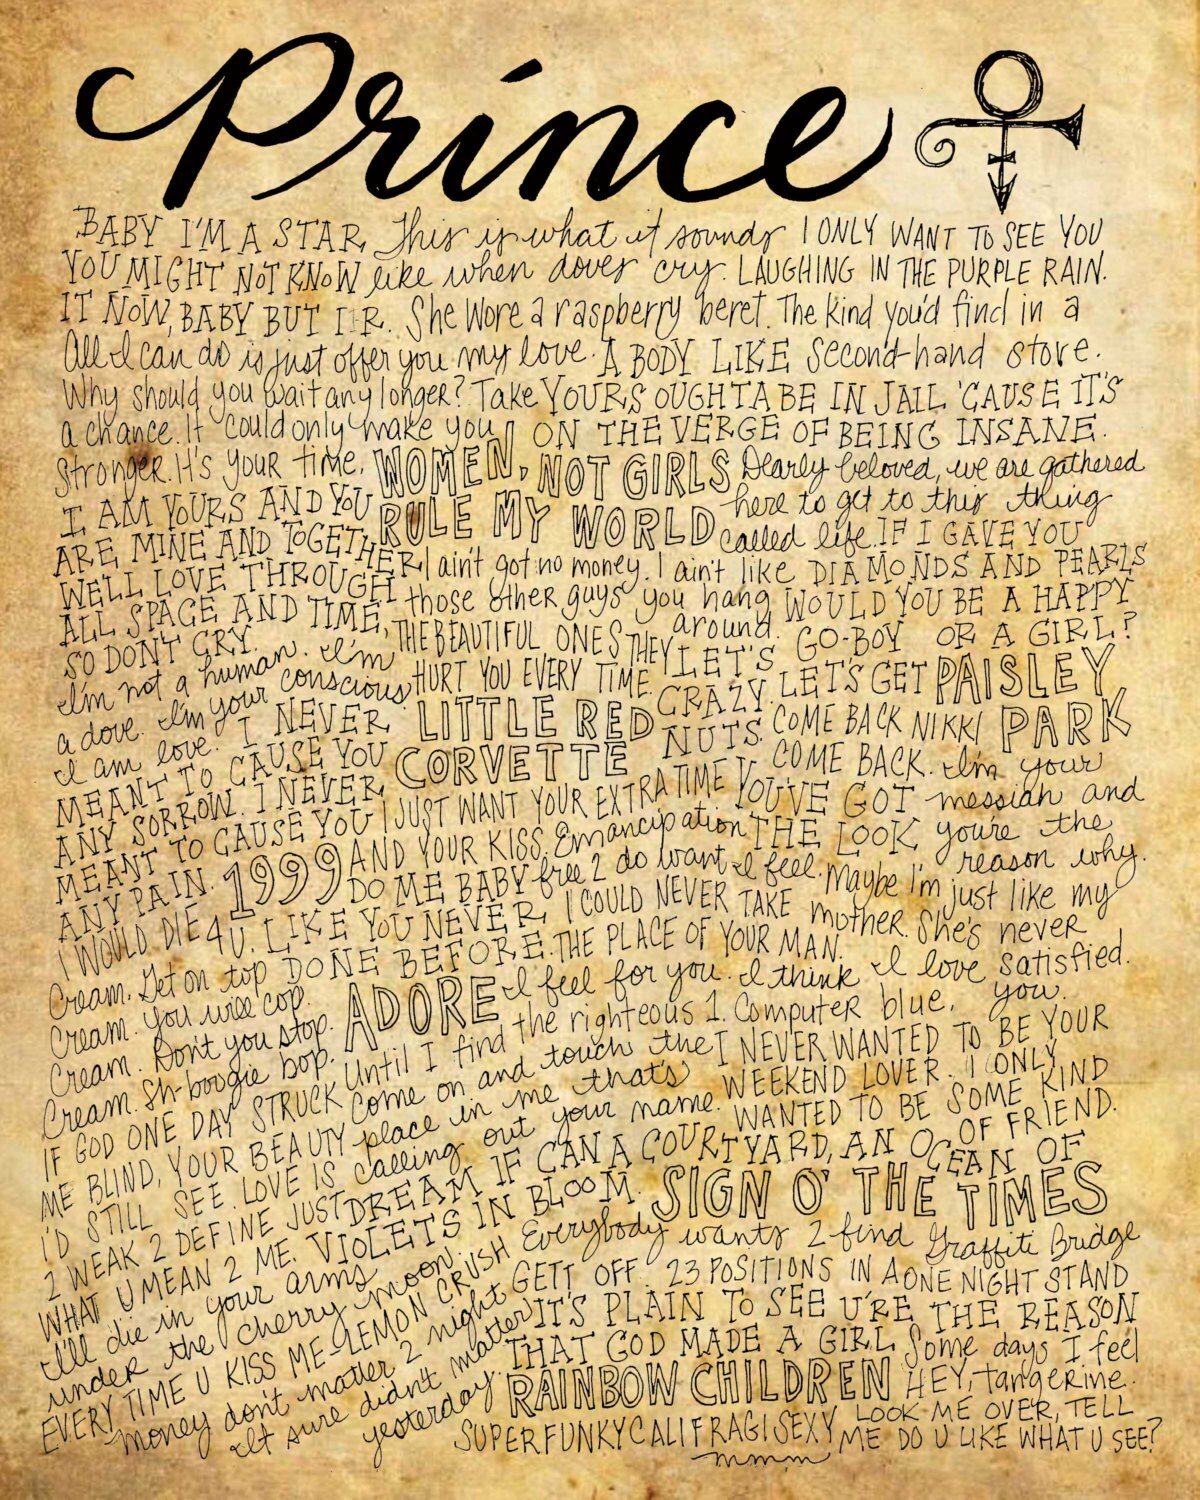 Prince
BABY I'M A STAR
YOU MIGHT NOT KNOW
IT NOW, BABY BUT I R.
This is what it sounds
like when doves cry.
I ONLY WANT TO SEE YOU
LAUGHING IN THE PURPLE RAIN.
She wore a raspberry beret. The kind you'd find in a
second-hand store.
All I can do is just offer you my love.
Why should you wait any longer? Take
a chance. It could only make you
stronger. It's your time.
A BODY LIKE
YOURS OUGHTA BE IN JAIL 'CAUSE IT'S
ON THE VERGE OF BEING INSANE.
WOMEN, NOT GIRLS
RULE MY WORLD
Dearly beloved, we are gathered
here to get to this thing
called life.
I AM YOURS AND YOU
ARE MINE AND TOGETHER
WE'LL LOVE THROUGH
ALL SPACE AND TIME,
SO DON'T CRY.
I ain't got no money. I ain't like
those other guys you hang
around.
IF I GAVE YOU
DIAMONDS AND PEARLS
WOULD YOU BE A HAPPY
BOY OR A GIRL?
THE BEAUTIFUL ONES THEY
HURT YOU EVERY TIME.
LET'S GO-
CRAZY. LET'S GET
NUTS.
PAISLEY
PARK
I'm not a human. I'm
a dove. I'm your conscious.
I am love.
LITTLE RED
CORVETTE
COME BACK NIKKI
COME BACK.
I NEVER
MEANT TO CAUSE YOU
ANY SORROW. I NEVER
MEANT TO CAUSE YOU
ANY PAIN.
I JUST WANT YOUR EXTRA TIME
AND YOUR KISS.
YOU'VE GOT
THE LOOK
I'm your
messiah and
you're the
reason why.
1999
Emancipation
free 2 do want I feel.
DO ME BABY
LIKE YOU NEVER
DONE BEFORE.
I WOULD DIE 4 U.
I COULD NEVER TAKE
THE PLACE OF YOUR MAN.
Maybe I'm just like my
mother. She's never
satisfied.
Cream. Get on top
Cream. You will cop.
Cream. Don't you stop.
Cream. Sh-boogie bop.
ADORE
I feel for you. I think I love
you.
Until I find the righteous 1. Computer blue.
Come on and touch the
place in me that's
calling out your name.
I NEVER WANTED TO BE YOUR
WEEKEND LOVER. I ONLY
WANTED TO BE SOME KIND
OF FRIEND.
IF GOD ONE DAY STRUCK
ME BLIND, YOUR BEAUTY
I'D STILL SEE. LOVE IS
2 WEAK 2 DEFINE JUST
WHAT U MEAN 2 ME.
DREAM IF CAN A COURTYARD, AN OCEAN OF
VIOLETS IN BLOOM.
SIGN O' THE TIMES
I'll die in your arms
under the cherry moon.
Everybody wants 2 find Graffiti Bridge
EVERY TIME U KISS ME LEMON CRUSH
GETT OFF. 23 POSITIONS IN A ONE NIGHT STAND
money don't matter 2 night
It sure didn't matter
yesterday.
IT'S PLAIN TO SEE U'RE THE REASON
THAT GOD MADE A GIRL
RAINBOW CHILDREN
Some days I feel
HEY, tangerine.
SUPERFUNKYCALIFRAGISEXY
LOOK ME OVER, TELL
ME DO U LIKE WHAT U SEE?
mmmm